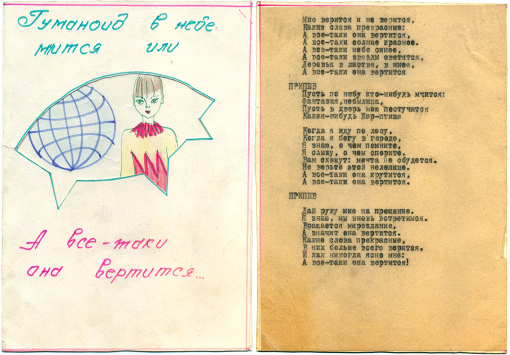 Гуманоид в небе
мчится или
А все-таки
она вертится...
Мне верится и не верится,
Какие слова прекрасные:
А все-таки она вертится,
А все-таки солнце красное,
А все-таки небо синее,
А все-таки звезды светятся,
Деревья в листве, в инее,
А все-таки она вертится
ПРИПЕВ
Пусть по небу кто-нибудь мчится:
фантазия, небылица,
Пусть в дверь мою постучится
Какая-нибудь Жар-птица
Когда я иду по лесу,
Когда я бегу в городе,
Я знаю, о чем помните,
Я слышу, о чем спорите.
Вам скажут: мечта не сбудется.
Не верьте этой нелепице,
А все-таки она крутится,
А все-таки она вертится.
ПРИПЕВ
Дай руку мне на прощание.
Я знаю, мы вновь встретимся.
Вращается мироздание,
А значит она вертится.
Какие слова прекрасные,
В них больше всего верится.
И как никогда ясно мне:
А все-таки она вертится!